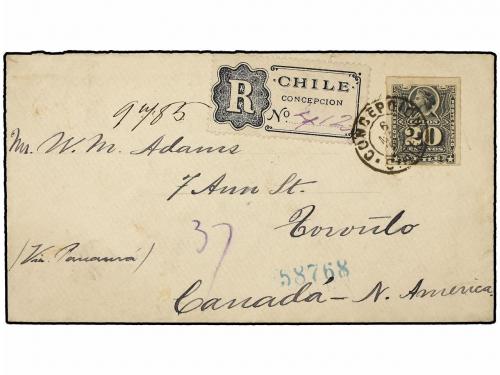 CHILE
CONCEPCION
R
No 412
CONCEPCION
20
9785
Mr. W. M. Adams
7 Ann St.
Toronto
37
(Via Panamá)
58768
Canadá - N. America